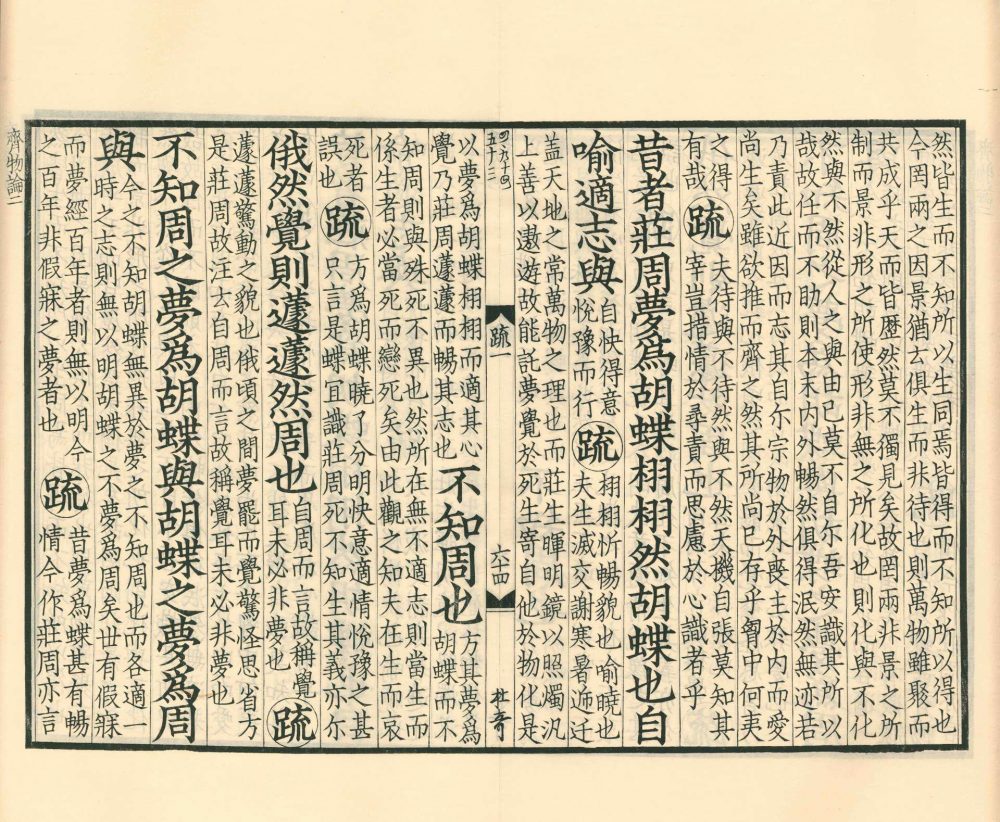 然皆生而不知所以生同焉皆得而不知所以得也
今罔兩之因景猶云俱生而非待也則萬物雖聚而
共成乎天而皆歷然莫不獨見矣故罔兩非景之所
制而景非形之所使形非無之所化也則化與不化
然與不然從人之與由己莫不自尔吾安識其所以
哉故任而不助則本末內外暢然俱得泯然無迹若
乃責此近因而忘其自尔宗物於外喪主於內而愛
尚生矣雖欲推而齊之然其所尚已存乎胷中何夷
之得
有哉
疏
夫待與不待然與不然天機自張莫知其
宰豈措情於尋責而思慮於心識者乎
昔者莊周夢爲胡蝶栩栩然胡蝶也自
喻適志與
自快得意
悅豫而行
疏
栩栩忻暢貌也喻曉也
夫生滅交謝寒暑遞迁
蓋天地之常萬物之理也而莊生暉明鏡以照燭汎
上善以遨遊故能託夢覺於死生寄自他於物化是
五十三
疏一
六十四
以夢爲胡蝶栩栩而適其心
覺乃莊周蘧蘧而暢其志也
不知周也
方其夢爲
胡蝶而不
知周則與殊死不異也然所在無不適志則當生而
係生者必當死而戀死矣由此觀之知夫在生而哀
死者
誤也
疏
方爲胡蝶曉了分明快意適情悅豫之甚
只言是蝶宜識莊周死不知生其義亦尔
俄然覺則蘧蘧然周也
自周而言故稱覺
耳未必非夢也
疏
蘧蘧驚動之貌也俄頃之間夢罷而覺驚怪思省方
是莊周故注云自周而言故稱覺耳未必非夢也
不知周之夢爲胡蝶與胡蝶之夢爲周
與
今之不知胡蝶無異於夢之不知周也而各適一
時之志則無以明胡蝶之不夢爲周矣世有假寐
而夢經百年者則無以明今
之百年非假寐之夢者也
疏
昔夢爲蝶甚有暢
情今作莊周亦言
齊物論二